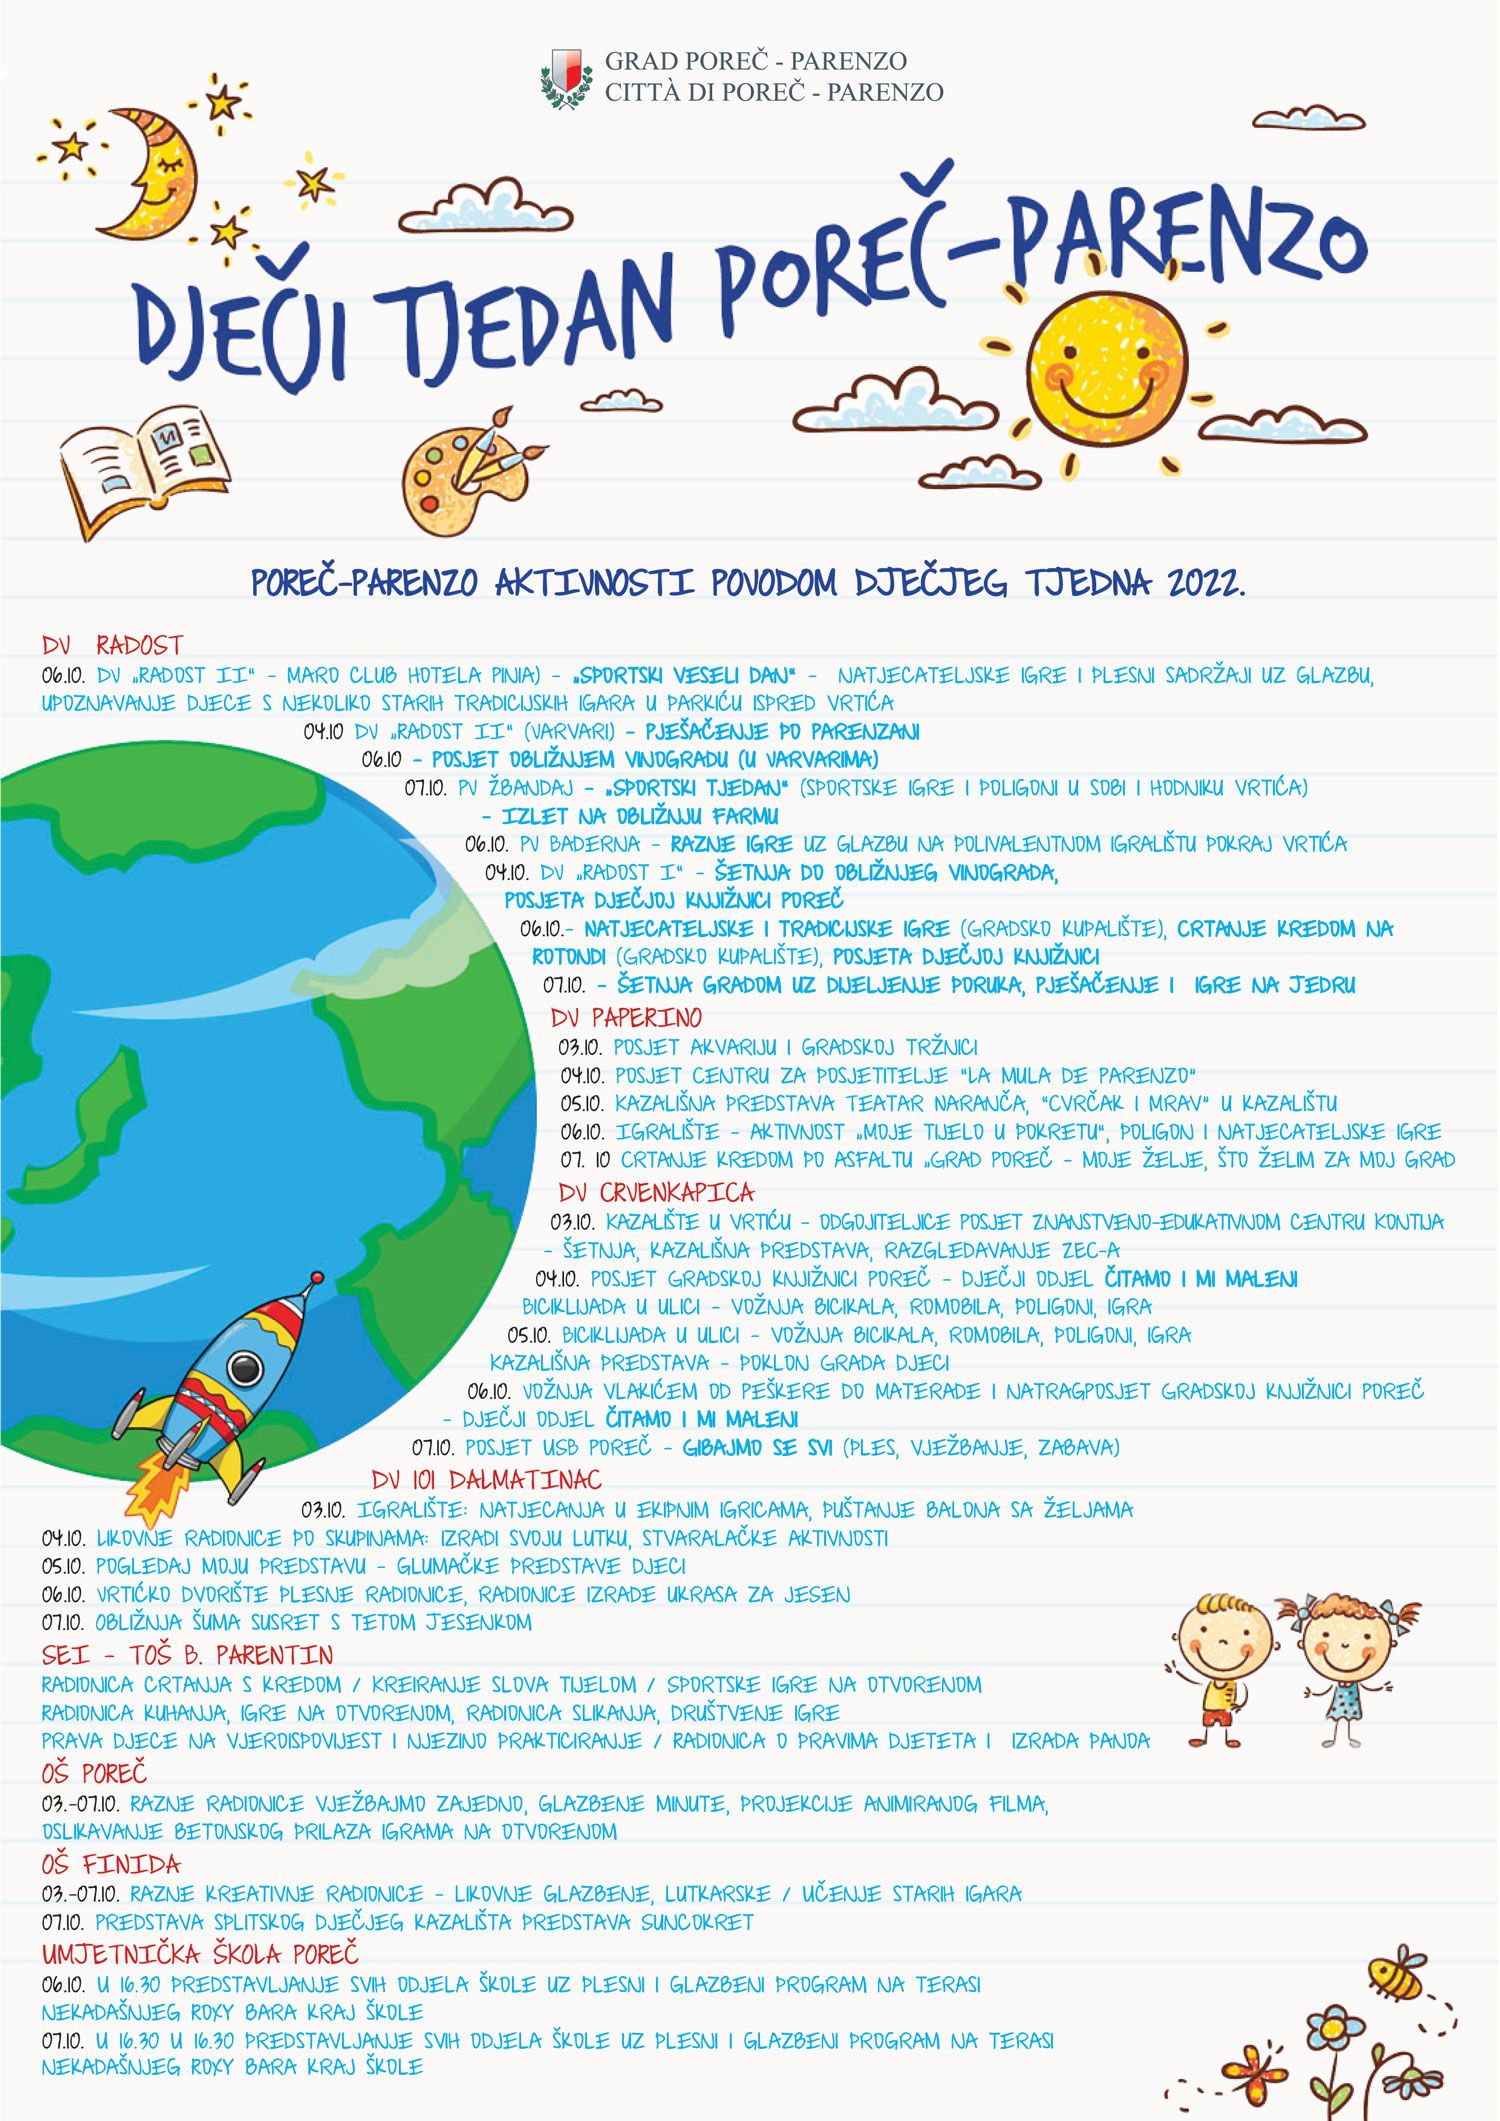 GRAD POREČ - PARENZO
CITTÀ DI POREČ - PARENZO
DJEČJI TJEDAN POREČ-PARENZO
POREČ-PARENZO AKTIVNOSTI POVODOM DJEČJEG TJEDNA 2022.
DV RADOST
06.10. DV „RADOST II“ - MARO CLUB HOTELA PINIA) - „SPORTSKI VESELI DAN“ - NATJECATELJSKE IGRE I PLESNI SADRŽAJI UZ GLAZBU,
UPOZNAVANJE DJECE S NEKOLIKO STARIH TRADICIJSKIH IGARA U PARKIĆU ISPRED VRTIĆA
04.10 DV „RADOST II“ (VARVARI) - PJEŠAČENJE PO PARENZANI
06.10 - POSJET OBLIŽNJEM VINOGRADU (U VARVARIMA)
07.10. PV ŽBANDAJ - „SPORTSKI TJEDAN“ (SPORTSKE IGRE I POLIGONI U SOBI I HODNIKU VRTIĆA)
- IZLET NA OBLIŽNJU FARMU
06.10. PV BADERNA - RAZNE IGRE UZ GLAZBU NA POLIVALENTNOM IGRALIŠTU POKRAJ VRTIĆA
04.10. DV „RADOST I“ - ŠETNJA DO OBLIŽNJEG VINOGRADA,
POSJETA DJEČJOJ KNJIŽNICI POREČ
06.10.- NATJECATELJSKE I TRADICIJSKE IGRE (GRADSKO KUPALIŠTE), CRTANJE KREDOM NA
ROTONDI (GRADSKO KUPALIŠTE), POSJETA DJEČJOJ KNJIŽNICI
07.10. - ŠETNJA GRADOM UZ DIJELJENJE PORUKA, PJEŠAČENJE I IGRE NA JEDRU
DV PAPERINO
03.10. POSJET AKVARIJU I GRADSKOJ TRŽNICI
04.10. POSJET CENTRU ZA POSJETITELJE "LA MULA DE PARENZO"
05.10. KAZALIŠNA PREDSTAVA TEATAR NARANČA, "CVRČAK I MRAV" U KAZALIŠTU
06.10. IGRALIŠTE - AKTIVNOST „MOJE TIJELO U POKRETU“, POLIGON I NATJECATELJSKE IGRE
07. 10 CRTANJE KREDOM PO ASFALTU „GRAD POREČ - MOJE ŽELJE, ŠTO ŽELIM ZA MOJ GRAD
DV CRVENKAPICA
03.10. KAZALIŠTE U VRTIĆU - ODGOJITELJICE POSJET ZNANSTVENO-EDUKATIVNOM CENTRU KONTIJA
- ŠETNJA, KAZALIŠNA PREDSTAVA, RAZGLEDAVANJE ZEC-A
04.10. POSJET GRADSKOJ KNJIŽNICI POREČ - DJEČJI ODJEL ČITAMO I MI MALENI
BICIKLIJADA U ULICI - VOŽNJA BICIKALA, ROMOBILA, POLIGONI, IGRA
05.10. BICIKLIJADA U ULICI - VOŽNJA BICIKALA, ROMOBILA, POLIGONI, IGRA
KAZALIŠNA PREDSTAVA - POKLON GRADA DJECI
06.10. VOŽNJA VLAKIĆEM OD PEŠKERE DO MATERADE I NATRAGPOSJET GRADSKOJ KNJIŽNICI POREČ
- DJEČJI ODJEL ČITAMO I MI MALENI
07.10. POSJET USB POREČ - GIBAJMO SE SVI (PLES, VJEŽBANJE, ZABAVA)
DV 101 DALMATINAC
03.10. IGRALIŠTE: NATJECANJA U EKIPNIM IGRICAMA, PUŠTANJE BALONA SA ŽELJAMA
04.10. LIKOVNE RADIONICE PO SKUPINAMA: IZRADI SVOJU LUTKU, STVARALAČKE AKTIVNOSTI
05.10. POGLEDAJ MOJU PREDSTAVU - GLUMAČKE PREDSTAVE DJECI
06.10. VRTIĆKO DVORIŠTE PLESNE RADIONICE, RADIONICE IZRADE UKRASA ZA JESEN
07.10. OBLIŽNJA ŠUMA SUSRET S TETOM JESENKOM
SEI - TOŠ B. PARENTIN
RADIONICA CRTANJA S KREDOM / KREIRANJE SLOVA TIJELOM / SPORTSKE IGRE NA OTVORENOM
RADIONICA KUHANJA, IGRE NA OTVORENOM, RADIONICA SLIKANJA, DRUŠTVENE IGRE
PRAVA DJECE NA VJEROISPOVIJEST I NJEZINO PRAKTICIRANJE / RADIONICA O PRAVIMA DJETETA I IZRADA PANOA
OŠ POREČ
03.-07.10. RAZNE RADIONICE VJEŽBAJMO ZAJEDNO, GLAZBENE MINUTE, PROJEKCIJE ANIMIRANOG FILMA,
OSLIKAVANJE BETONSKOG PRILAZA IGRAMA NA OTVORENOM
OŠ FINIDA
03.-07.10. RAZNE KREATIVNE RADIONICE - LIKOVNE GLAZBENE, LUTKARSKE / UČENJE STARIH IGARA
07.10. PREDSTAVA SPLITSKOG DJEČJEG KAZALIŠTA PREDSTAVA SUNCOKRET
UMJETNIČKA ŠKOLA POREČ
06.10. U 16.30 PREDSTAVLJANJE SVIH ODJELA ŠKOLE UZ PLESNI I GLAZBENI PROGRAM NA TERASI
NEKADAŠNJEG ROXY BARA KRAJ ŠKOLE
07.10. U 16.30 U 16.30 PREDSTAVLJANJE SVIH ODJELA ŠKOLE UZ PLESNI I GLAZBENI PROGRAM NA TERASI
NEKADAŠNJEG ROXY BARA KRAJ ŠKOLE